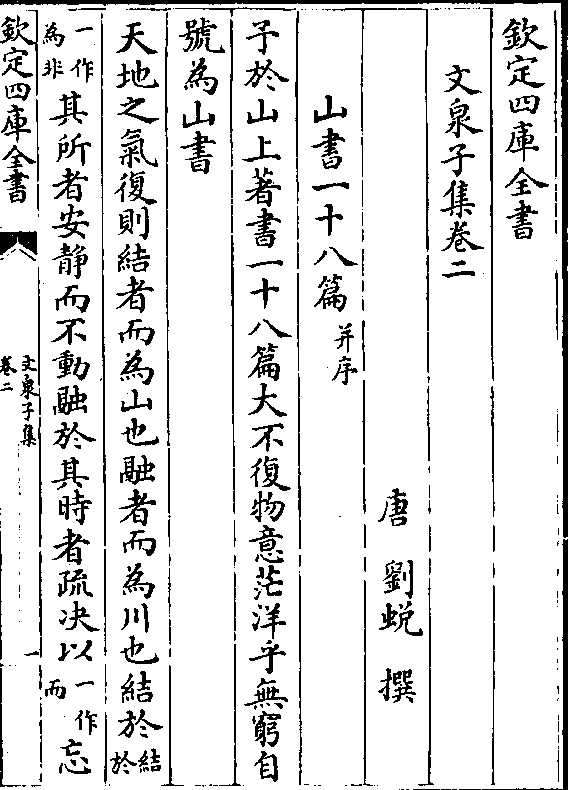 欽定四庫全書
文泉子集卷二
唐 劉蛻 撰
山書一十八篇 并序
予於山上著書一十八篇大不復物意茫洋乎無窮自
號為山書
天地之氣復則結者而為山也融者而為川也結於結於
一作為非其所者安静而不動融於其時者疏决以一作而忘
欽定四庫全書
文泉子集
卷二
一